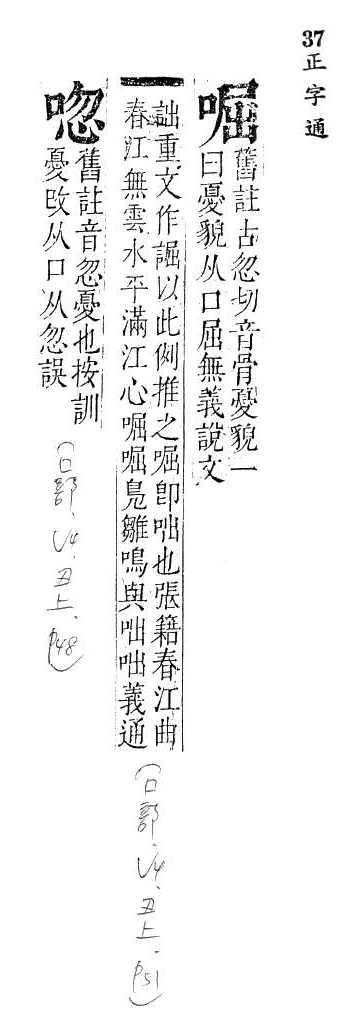 37正字通
啒
舊註古忽切音骨憂貌一
曰憂貌从口屈無義說文
詘重文作誳以此例推之啒卽咄也張籍春江曲
春江無雲水平滿江心啒啒鳧雛鳴與咄咄義通
唿
舊註音忽憂也按訓
憂攺从口从忽誤
(口部、V4、丑上、P51)
(口部、V4、丑上、P48)